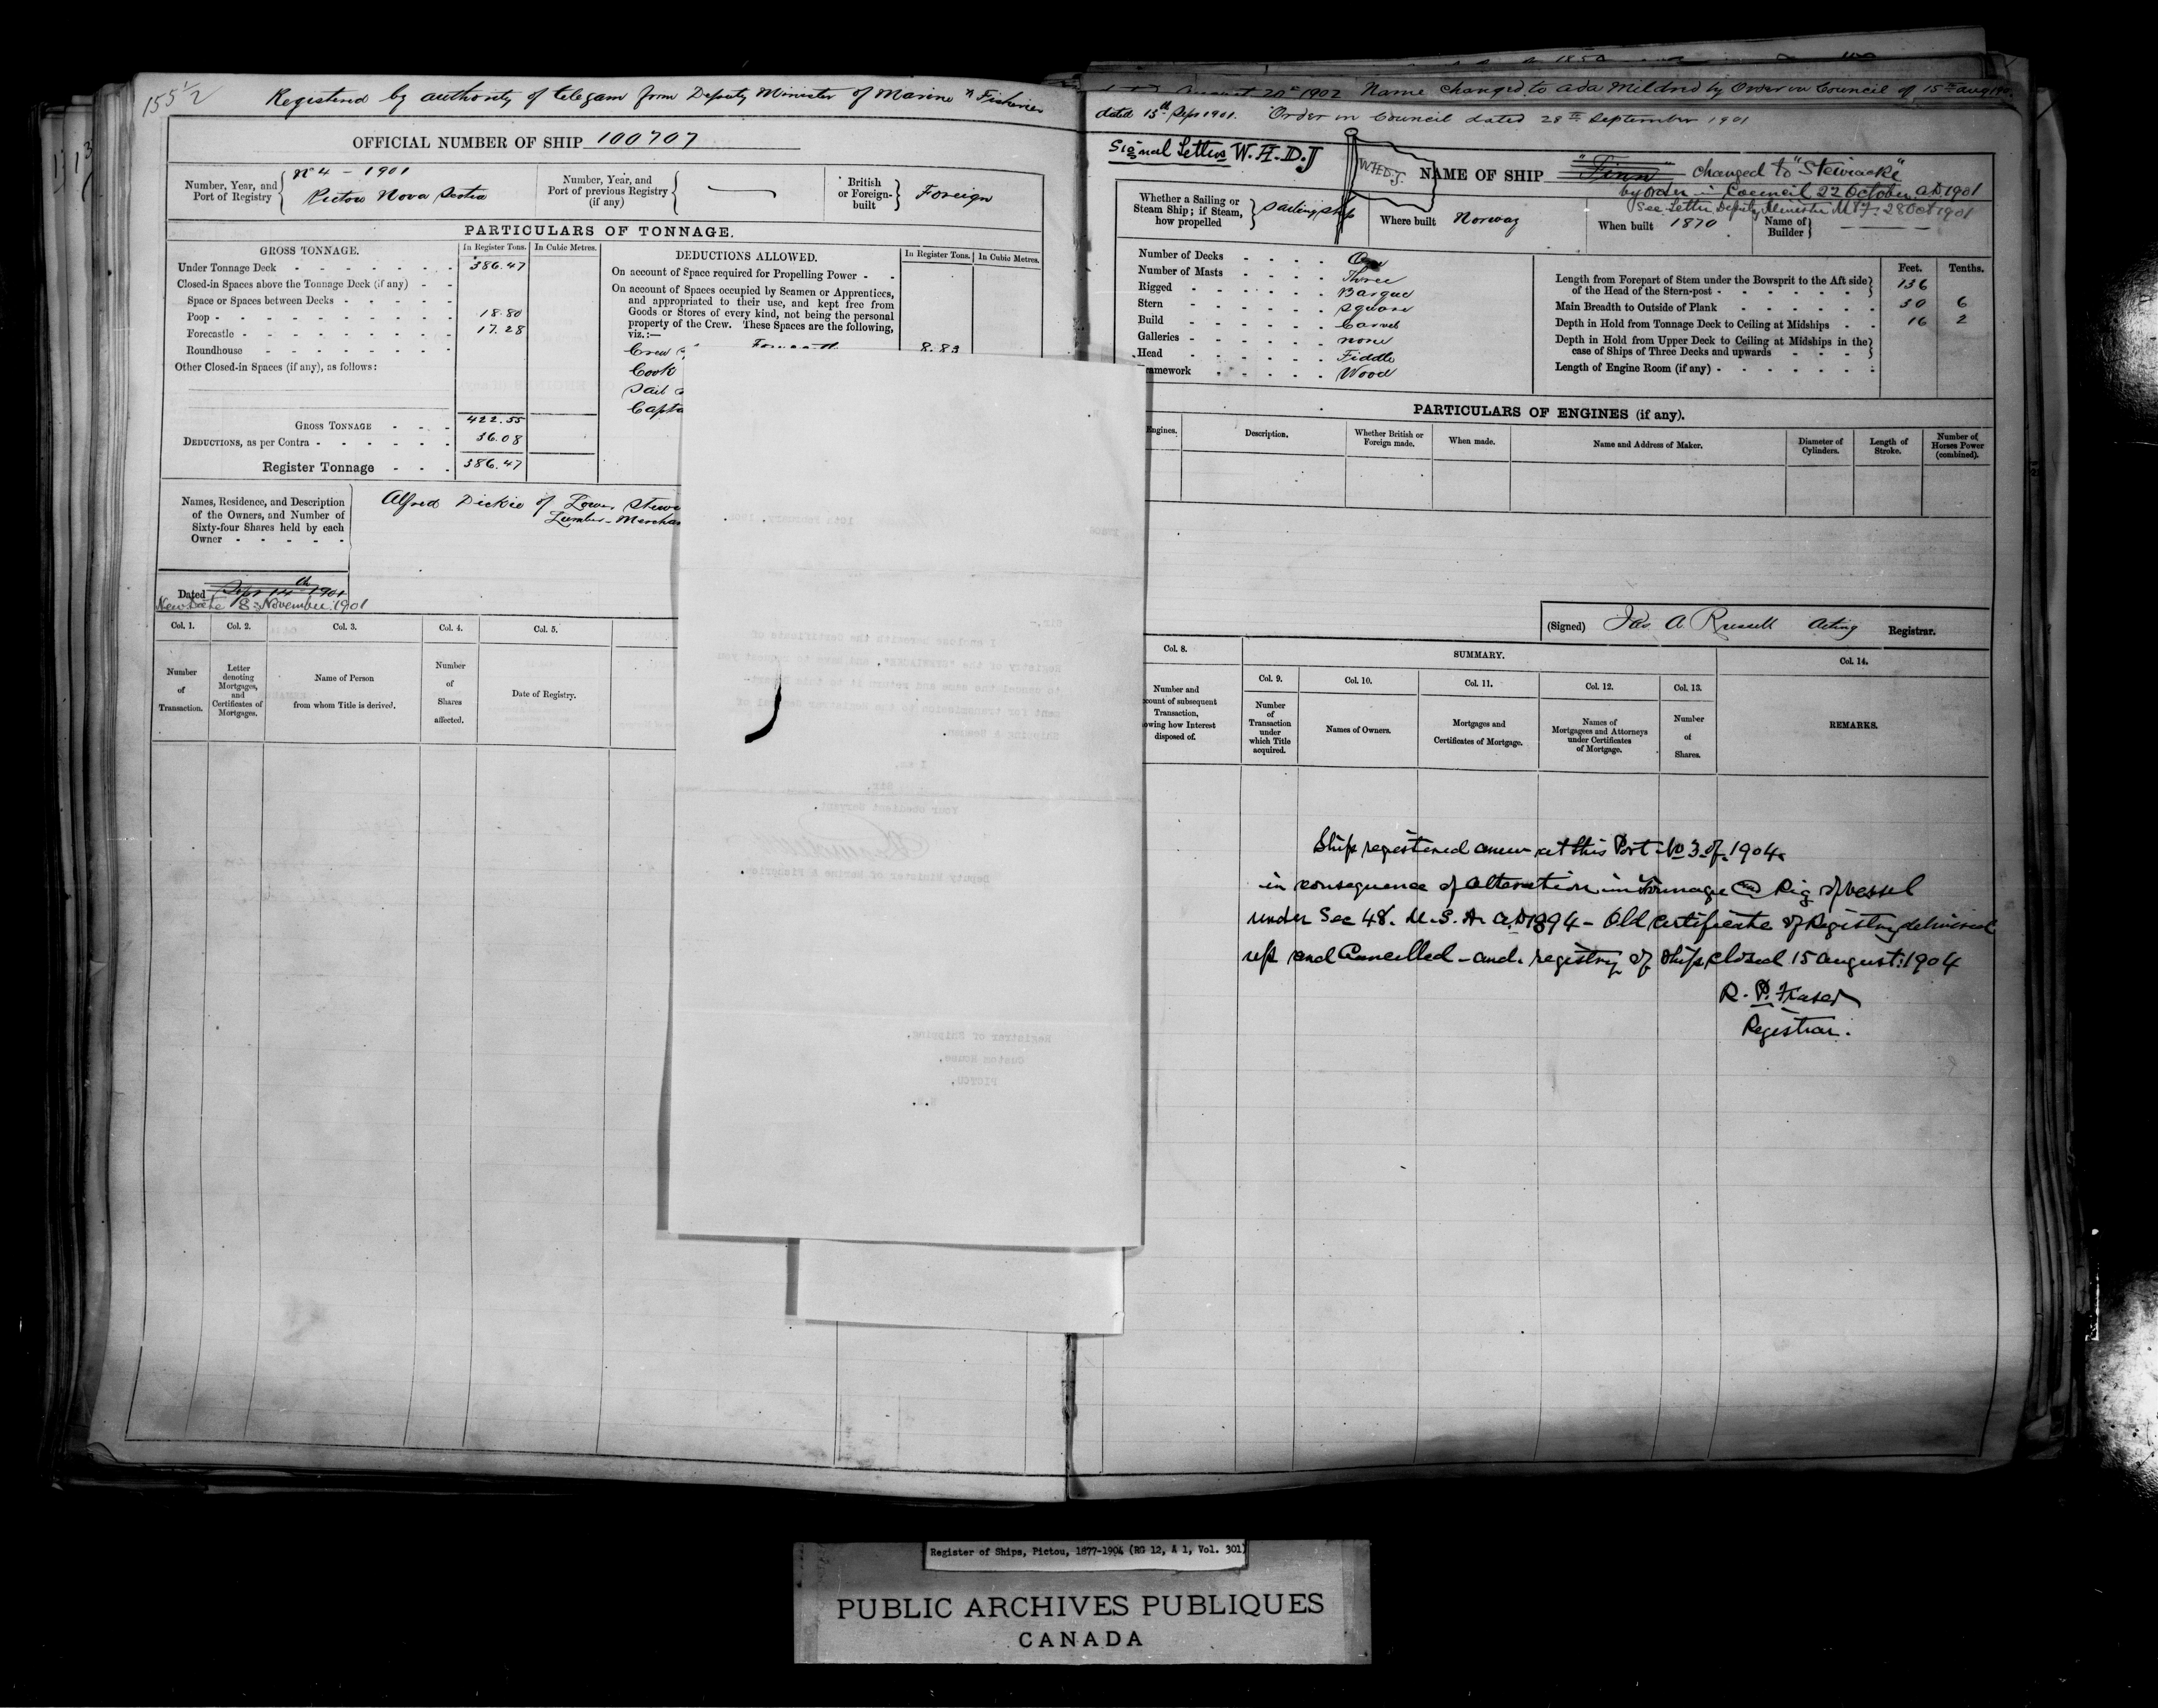 155 1/2
Registered by authority of telegam from Deputy Minister of Marine & Fisheries
OFFICIAL NUMBER OF SHIP 100707
Number, Year, and Port of Registry
No 4 - 1901
Pictou Nova Scotia
Number, Year, and Port of previous Registry (if any)
British or Foreign-built
Foreign
PARTICULARS OF TONNAGE.
GROSS TONNAGE.
In Register Tons.
In Cubic Metres.
Under Tonnage Deck 386.47
Closed-in Spaces above the Tonnage Deck (if any)
Space or Spaces between Decks
Poop 18.80
Forecastle 17.28
Roundhouse
Other Closed-in Spaces (if any), as follows:
GROSS TONNAGE 422.55
DEDUCTIONS, as per Contra 36.08
Register Tonnage 386.47
DEDUCTIONS ALLOWED.
In Register Tons.
In Cubic Metres.
On account of Space required for Propelling Power
On account of Spaces occupied by Seamen or Apprentices,
and appropriated to their use, and kept free from
Goods or Stores of every kind, not being the personal
property of the Crew. These Spaces are the following,
viz.:—
Crew 8.83
Cook
Sail
Capta
Names, Residence, and Description
of the Owners, and Number of
Sixty-four Shares held by each
Owner
Alfred Dickie of Lower Stewi
Lumber-Merchan
Dated Sept 14th 1901
New Date 8 November 1901
Col. 1.
Col. 2.
Col. 3.
Col. 4.
Col. 5.
Number of Transaction.
Letter denoting Mortgages, and Certificates of Mortgages.
Name of Person from whom Title is derived.
Number of Shares affected.
Date of Registry.
August 20th 1902 Name changed to Ada Mildred by Order in Council of 15th Aug 190
dated 13th Sept 1901. Order in Council dated 28th September 1901
Signal Letters W.H.D.J
W.H.D.J.
NAME OF SHIP "Finn" changed to "Stewiacke"
by order in Council 22 October AD 1901
See Letter Deputy Minister M & F 28 Oct 1901
Whether a Sailing or Steam Ship; if Steam, how propelled
Sailing Ship
Where built Norway
When built 1870
Name of Builder
Number of Decks One
Number of Masts Three
Rigged Barque
Stern Square
Build Carvel
Galleries none
Head Fiddle
ramework Wood
Feet.
Tenths.
Length from Forepart of Stem under the Bowsprit to the Aft side
of the Head of the Stern-post 136
Main Breadth to Outside of Plank 30 6
Depth in Hold from Tonnage Deck to Ceiling at Midships 16 2
Depth in Hold from Upper Deck to Ceiling at Midships in the
case of Ships of Three Decks and upwards
Length of Engine Room (if any)
PARTICULARS OF ENGINES (if any).
Engines.
Description.
Whether British or Foreign made.
When made.
Name and Address of Maker.
Diameter of Cylinders.
Length of Stroke.
Number of Horses Power (combined).
(Signed) Jas. A. Russell Acting Registrar.
Col. 8.
SUMMARY.
Col. 14.
Col. 9.
Col. 10.
Col. 11.
Col. 12.
Col. 13.
Number and
count of subsequent
Transaction,
owing how Interest
disposed of.
Number of Transaction under which Title acquired.
Names of Owners.
Mortgages and Certificates of Mortgage.
Names of Mortgagees and Attorneys under Certificates of Mortgage.
Number of Shares.
REMARKS.
Ship registered anew at this Port No 3 of 1904
in consequence of alteration in Tonnage and Rig of vessel
under Sec 48. M.S.A. AD 1894 - Old Certificate of Registry delivered
up and Cancelled - and registry of Ship closed 15 August: 1904
R. P. Fraser
Registrar.
I enclose herewith the Certificate of
Registry of the "STEWIACKE" and have to request you
to cancel the same and return it to this Depart-
ment for transmission to the Registrar General of
Shipping & Seamen.
I am,
Sir,
Your obedient Servant
Deputy Minister of Marine & Fisheries
Registrar of Shipping,
Custom House,
PICTOU,
Register of Ships, Pictou, 1877-1904 (RG 12, A 1, Vol. 301)
PUBLIC ARCHIVES PUBLIQUES
CANADA